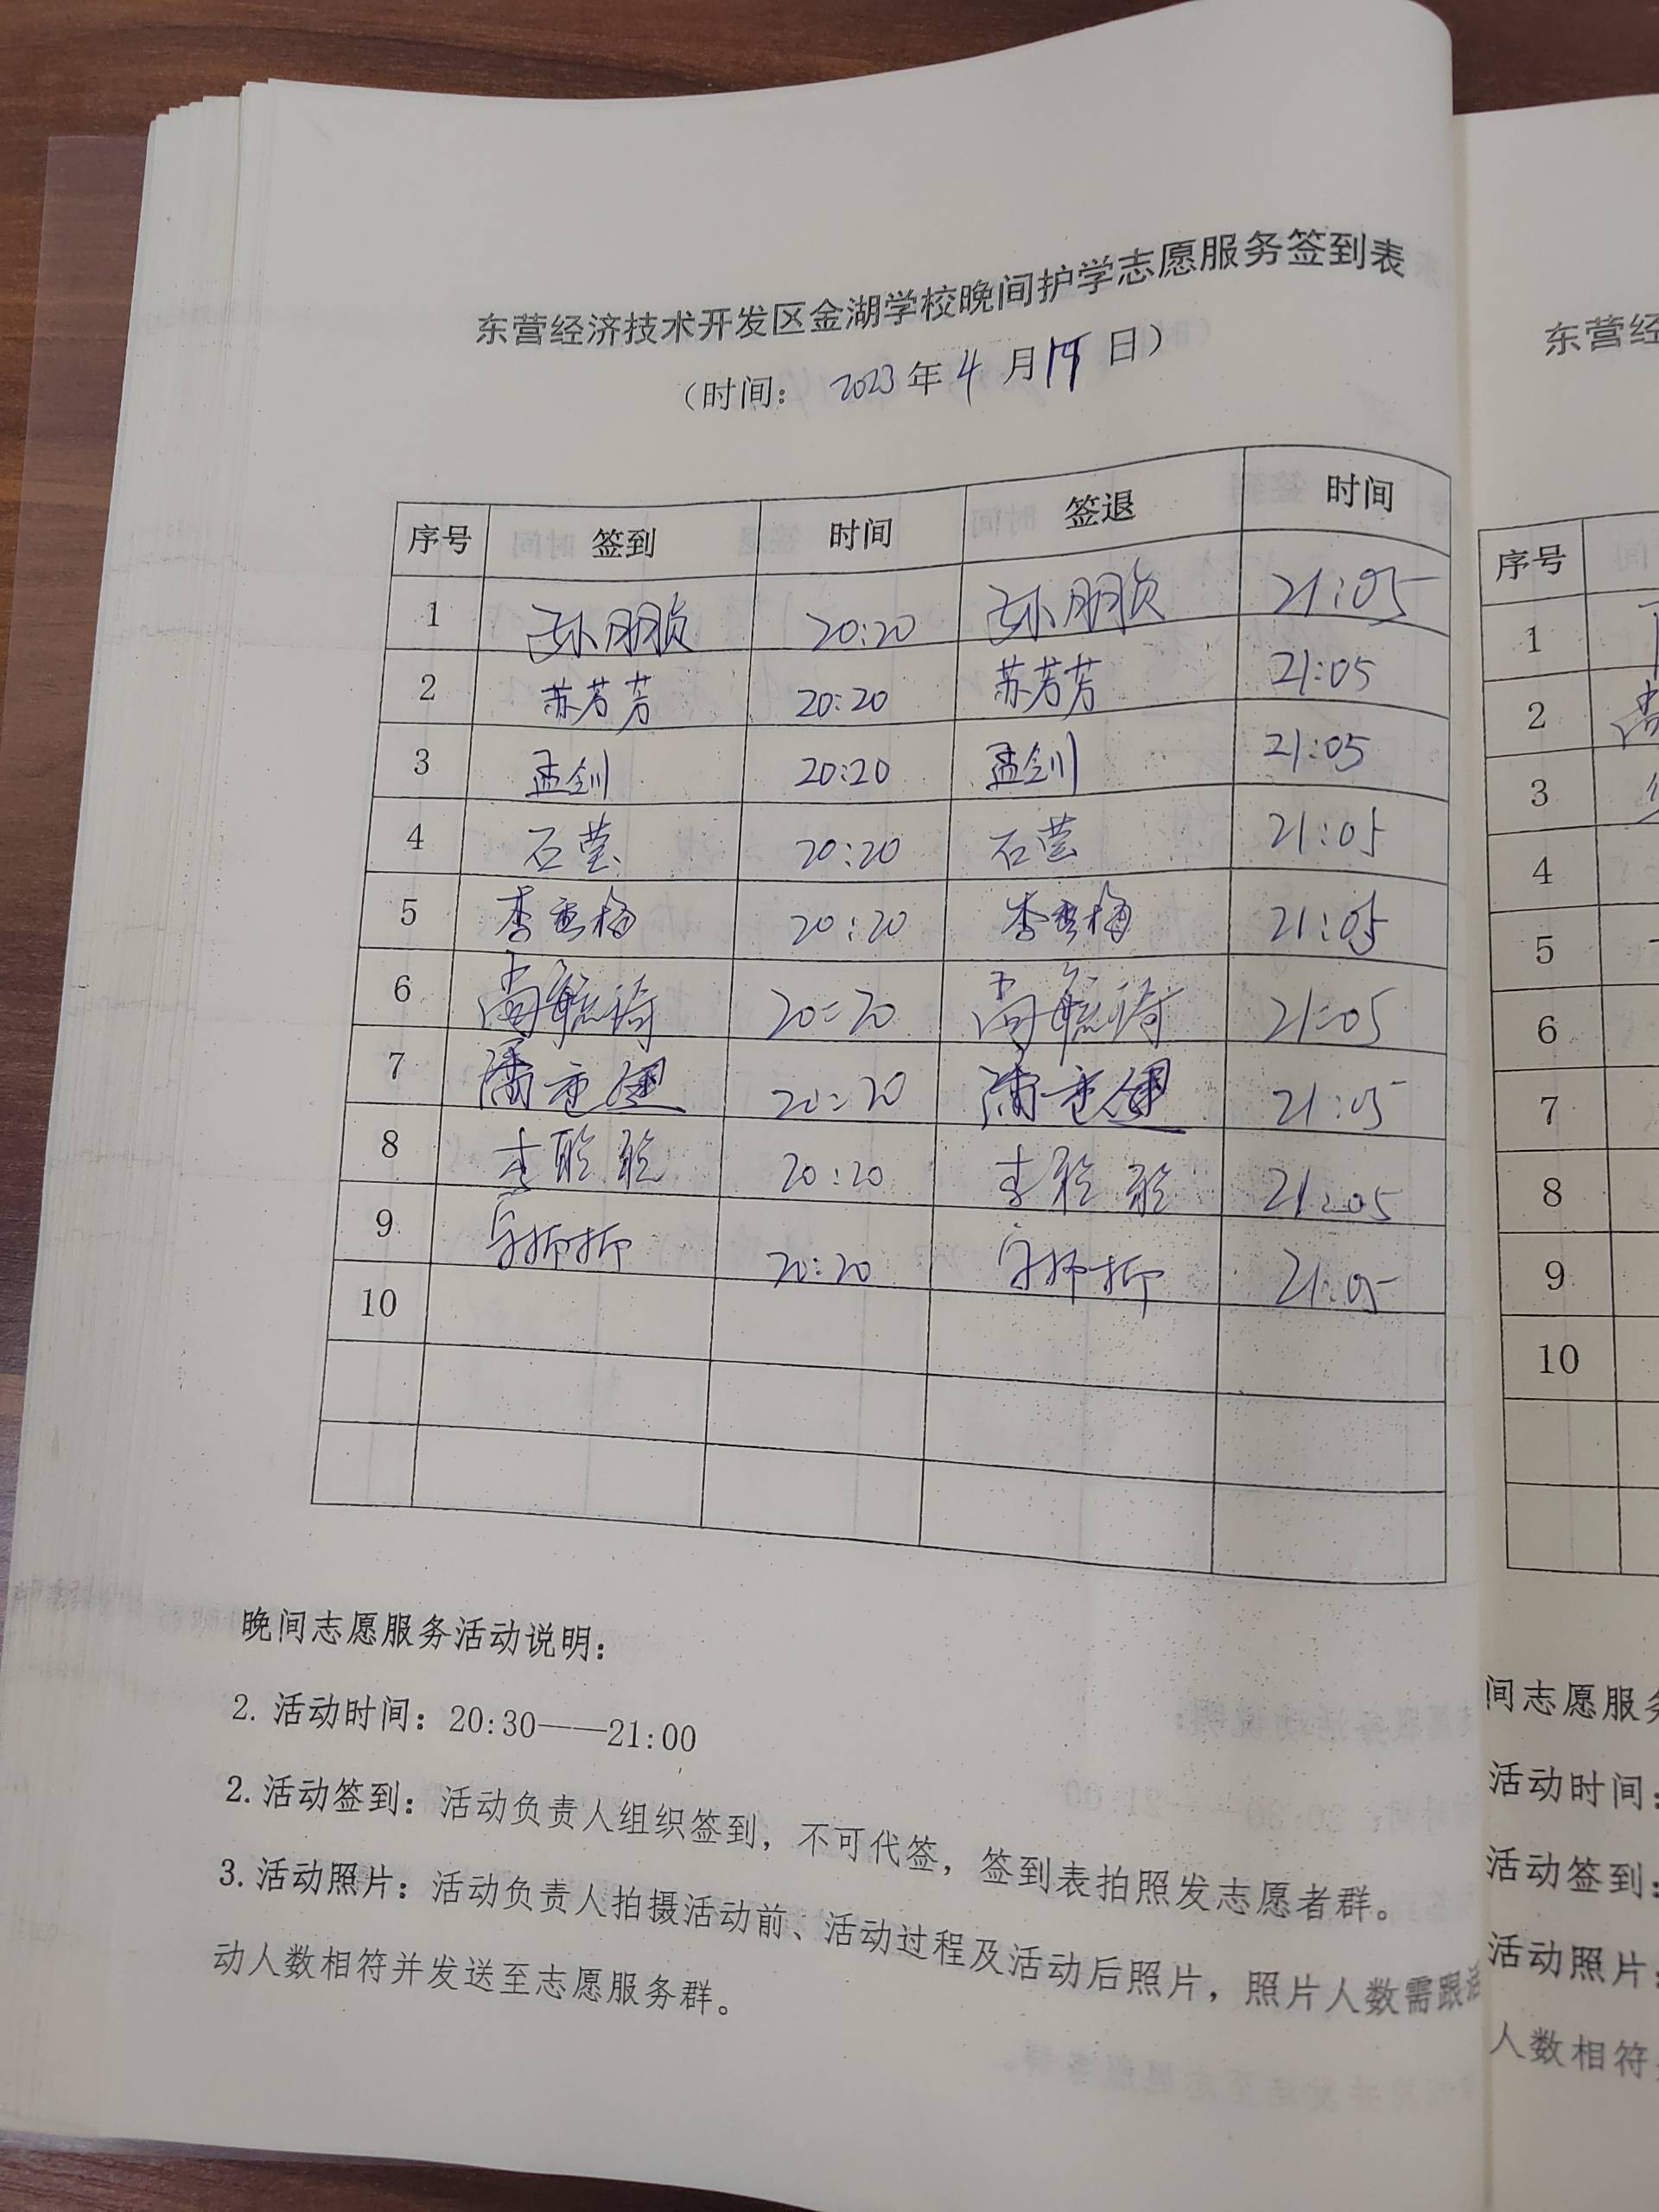 东营经济技术开发区金湖学校晚间护学志愿服务签到表
(时间: 2023年4月19日)
序号 签到 时间 签退 时间
1 孙朋颀 20:20 孙朋颀 21:05
2 苏芳芳 20:20 苏芳芳 21:05
3 孟剑 20:20 孟剑 21:05
4 石莹 20:20 石莹 21:05
5 李秀梅 20:20 李秀梅 21:05
6 尚毓琦 20:20 尚毓琦 21:05
7 潘 20:20 潘 21:05
8 李聪聪 20:20 李聪聪 21:05
9 20:20 21:05
10
晚间志愿服务活动说明:
2. 活动时间: 20:30——21:00
2. 活动签到: 活动负责人组织签到, 不可代签, 签到表拍照发志愿者群。
3. 活动照片: 活动负责人拍摄活动前、活动过程及活动后照片, 照片人数需跟活
动人数相符并发送至志愿服务群。
东营经
序号
1
2
3
4
5
6
7
8
9
10
间志愿服务
活动时间:
活动签到:
活动照片:
人数相符